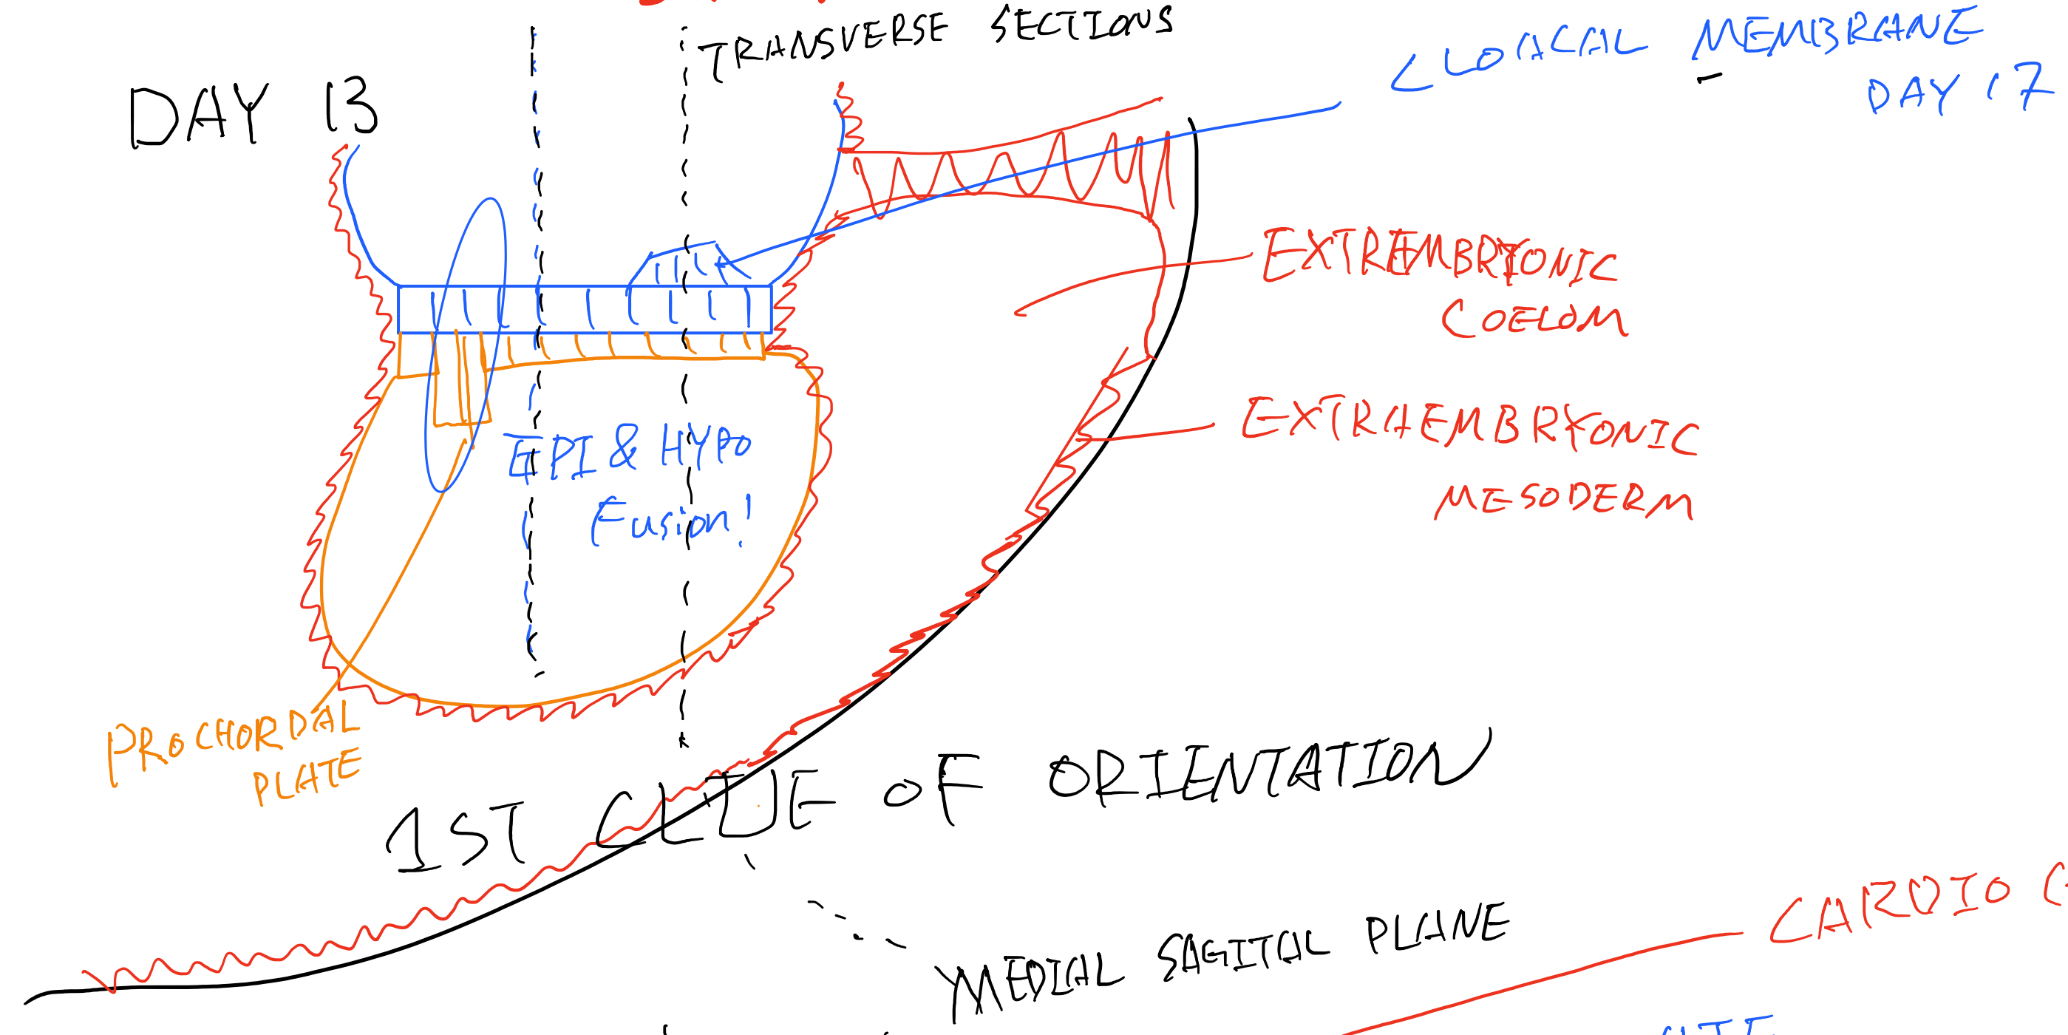 TRANSVERSE SECTIONS
CLOACAL MEMBRANE
DAY 17
DAY 13
EXTREMBRYONIC
COELOM
EXTRAEMBRYONIC
MESODERM
EPI & HYPO
Fusion!
PROCHORDAL
PLATE
1ST CLUE OF ORIENTATION
MEDIAL SAGITAL PLANE
CARDIO